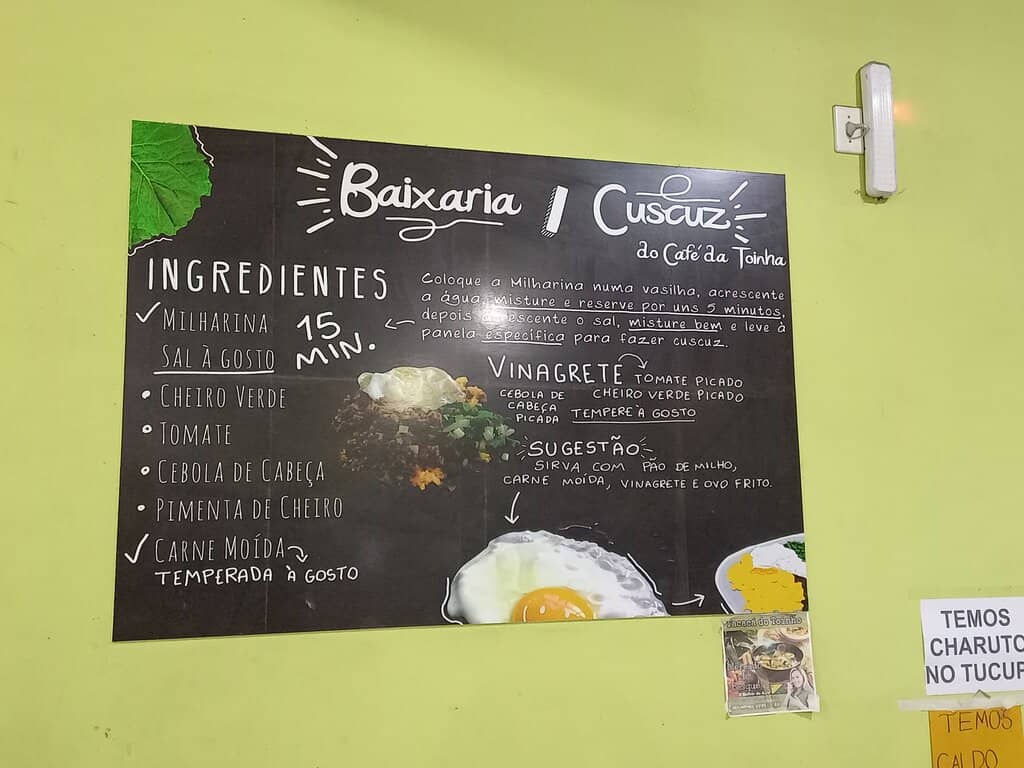 Baixaria / Cuscuz
do Café da Toinha
INGREDIENTES
MILHARINA
SAL À GOSTO
15
MIN.
CHEIRO VERDE
TOMATE
CEBOLA DE CABEÇA
PIMENTA DE CHEIRO
CARNE MOÍDA
TEMPERADA À GOSTO
Coloque a Milharina numa vasilha, acrescente
a água, misture e reserve por uns 5 minutos,
depois acrescente o sal, misture bem e leve à
panela específica para fazer cuscuz.
VINAGRETE
TOMATE PICADO
CEBOLA DE
CABEÇA
PICADA
CHEIRO VERDE PICADO
TEMPERE À GOSTO
SUGESTÃO
SIRVA COM PÃO DE MILHO,
CARNE MOÍDA, VINAGRETE E OVO FRITO.
TEMOS
CHARUTO
NO TUCUP
TEMOS
CALDO